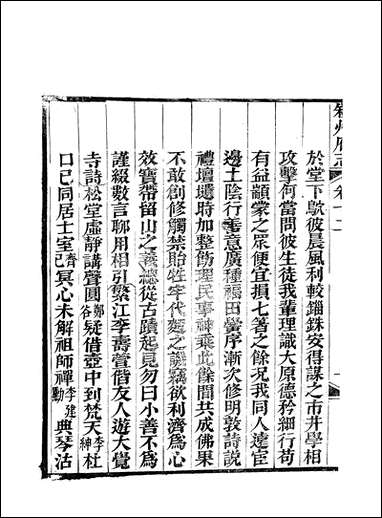 叙州府志 卷十二
於堂下歇彼晨風利較錙銖安得謀之市井學相
攻擊何當問彼生徒我輩理識大原德矜細行苟
有益顓蒙之眾便宜損七箸之餘况我同人達宦
邊土陰行善意廣種福田黌序漸次修明敦詩說
禮壇壝時加整飭理民事神乘此餘閒共成佛果
不敢創修觸禁貽牲牢代麵之譏竊欲利濟為心
效寶帶留山之義總從古蹟起見勿曰小善不為
謹綴數言聊用相引繁江李壽萱偕友人遊大覺
寺詩松堂虛靜講聲圓鄭谷疑借壺中到梵天李紳杜
口已同居士室齊己冥心未解祖師禪李建勳典琴沽